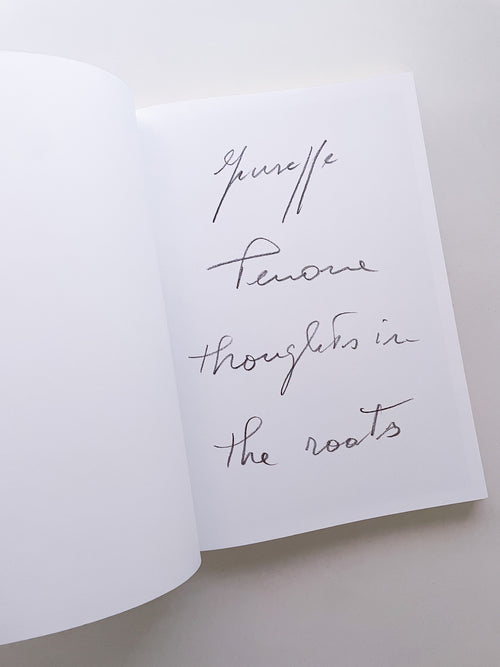 Giuseppe
Penone
thoughts in
the roots